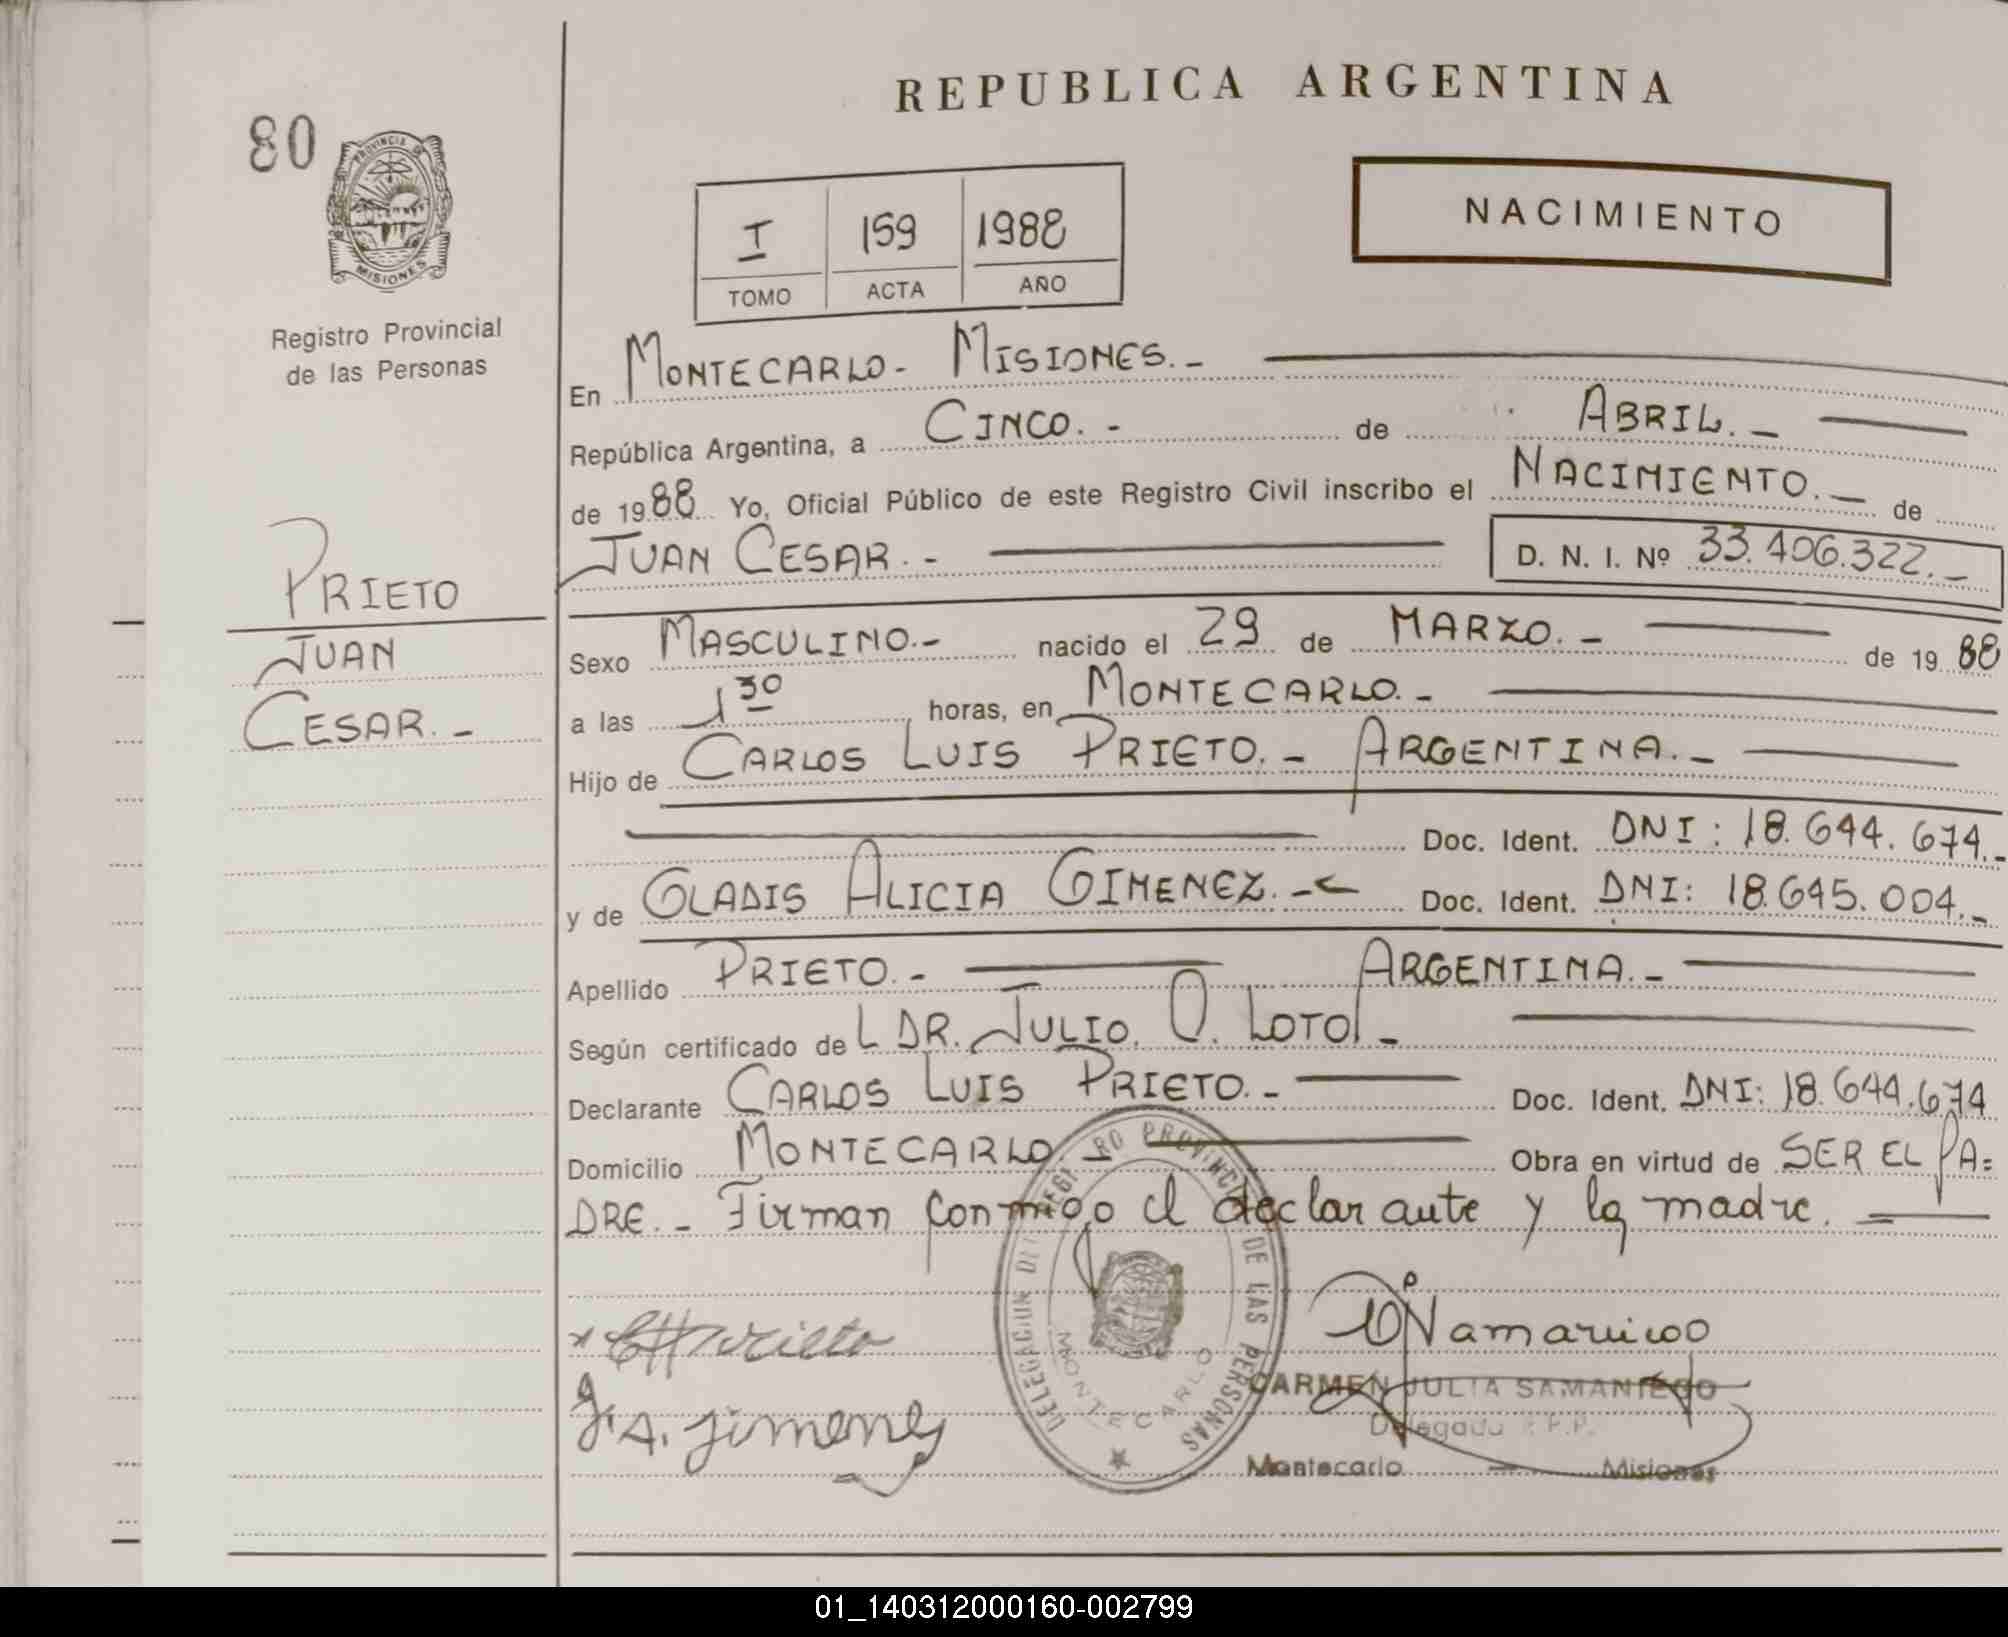 REPUBLICA ARGENTINA
80
PROVINCIA DE
MISIONES
Registro Provincial
de las Personas
I 159 1988
TOMO ACTA AÑO
NACIMIENTO
En MONTECARLO- MISIONES.-
República Argentina, a CINCO.- de ABRIL.-
de 1988 Yo, Oficial Público de este Registro Civil inscribo el NACIMIENTO.- de
JUAN CESAR.- D. N. I. Nº 33.406.322.-
PRIETO
JUAN
CESAR.-
Sexo MASCULINO.- nacido el 29 de MARZO.- de 1988
a las 1 30 horas, en MONTECARLO.-
Hijo de CARLOS LUIS PRIETO.- ARGENTINA.-
Doc. Ident. DNI: 18.644.674.-
y de GLADIS ALICIA GIMENEZ.- Doc. Ident. DNI: 18.645.004.-
Apellido PRIETO.- ARGENTINA.-
Según certificado de L DR. JULIO. O. LOTO.-
Declarante CARLOS LUIS PRIETO.- Doc. Ident. DNI: 18.644.674
Domicilio MONTECARLO Obra en virtud de SER EL PA=
DRE.- Firman conmigo el declarante y la madre.
DELEGACION DEL REGISTRO PROVINCIAL DE LAS PERSONAS
MONTECARLO
CARMEN JULIA SAMANIEGO
Delegado R.P.P.
Montecarlo - Misiones
01_140312000160-002799